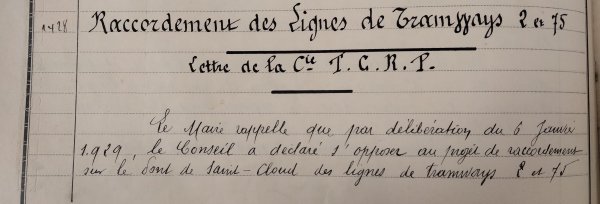 1428 Raccordement des Lignes de Tramways 2 et 75
Lettre de la Cie T.C.R.P.
Le Maire rappelle que par délibération du 6 Janvier
1.929, le Conseil a declaré s'opposer au projet de raccordement
sur le Pont de Saint-Cloud des lignes de tramways 2 et 75